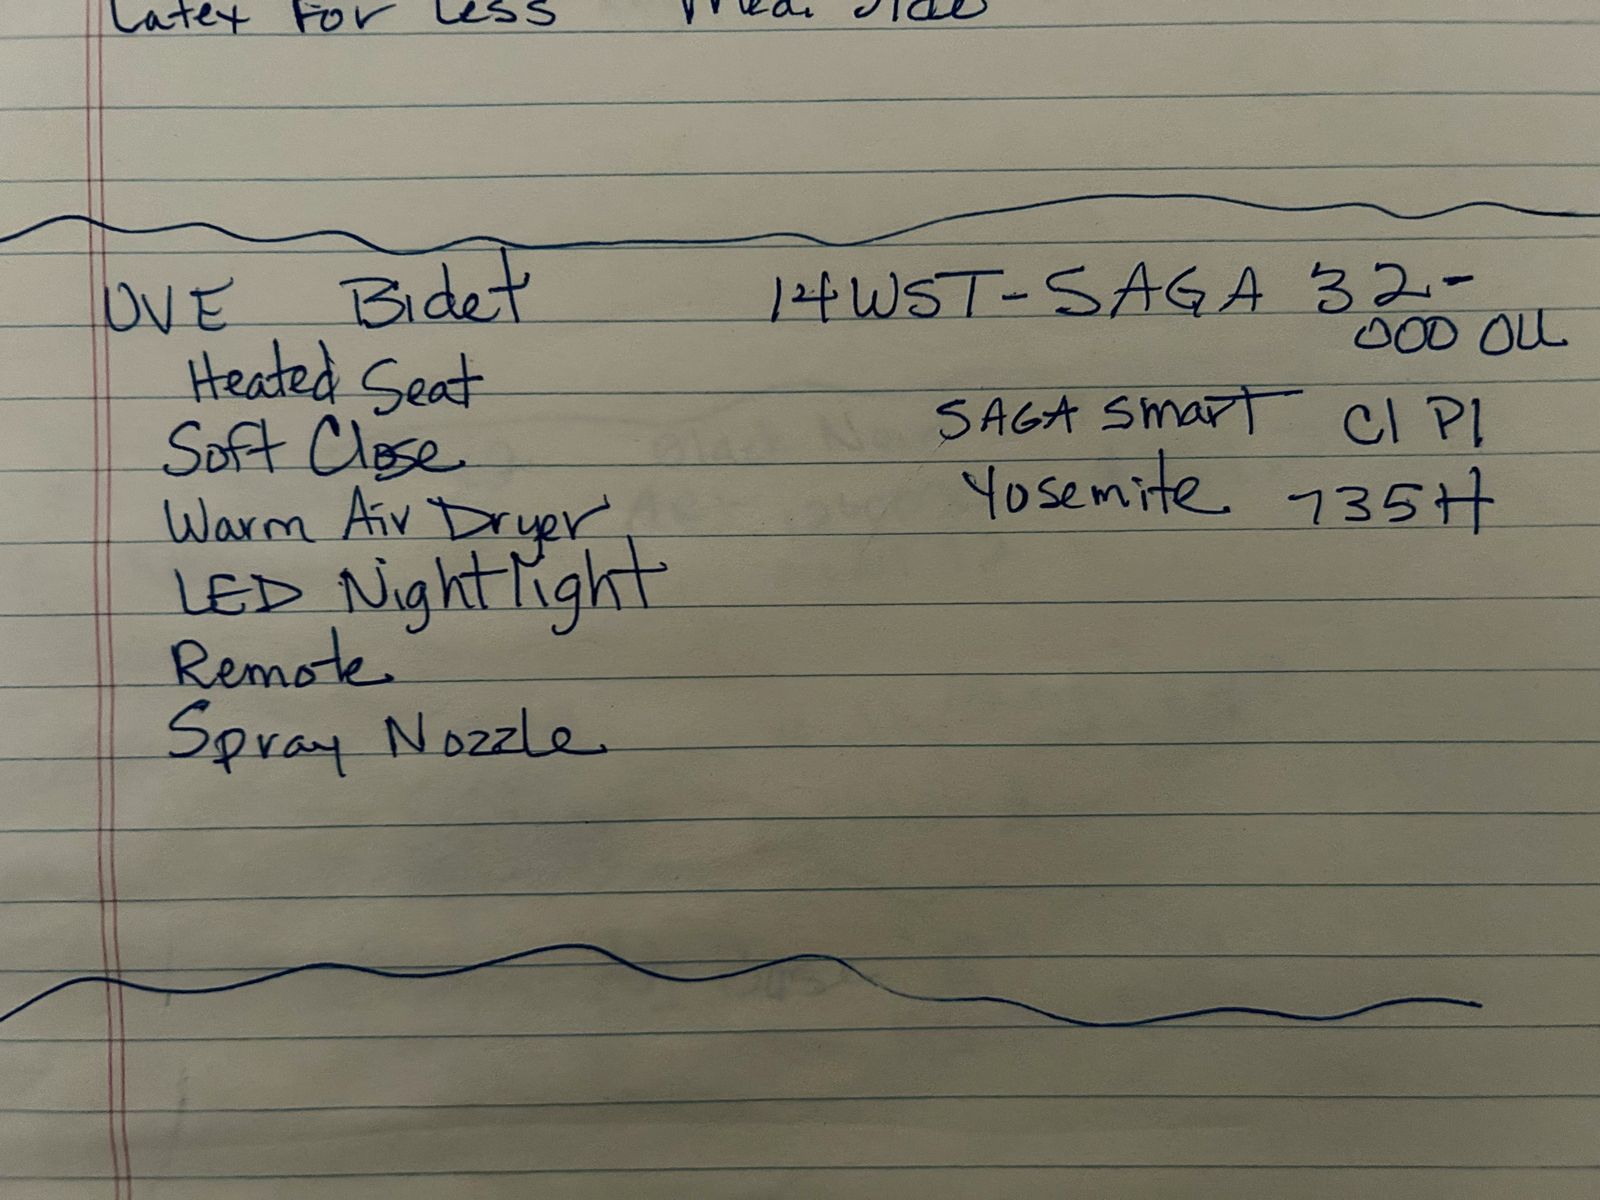 Latex For Less
UVE Bidet 14WST-SAGA 32-
000 OLL
Heated Seat
SAGA Smart C1 P1
Soft Close
Yosemite 735H
Warm Air Dryer
LED Nightlight
Remote
Spray Nozzle